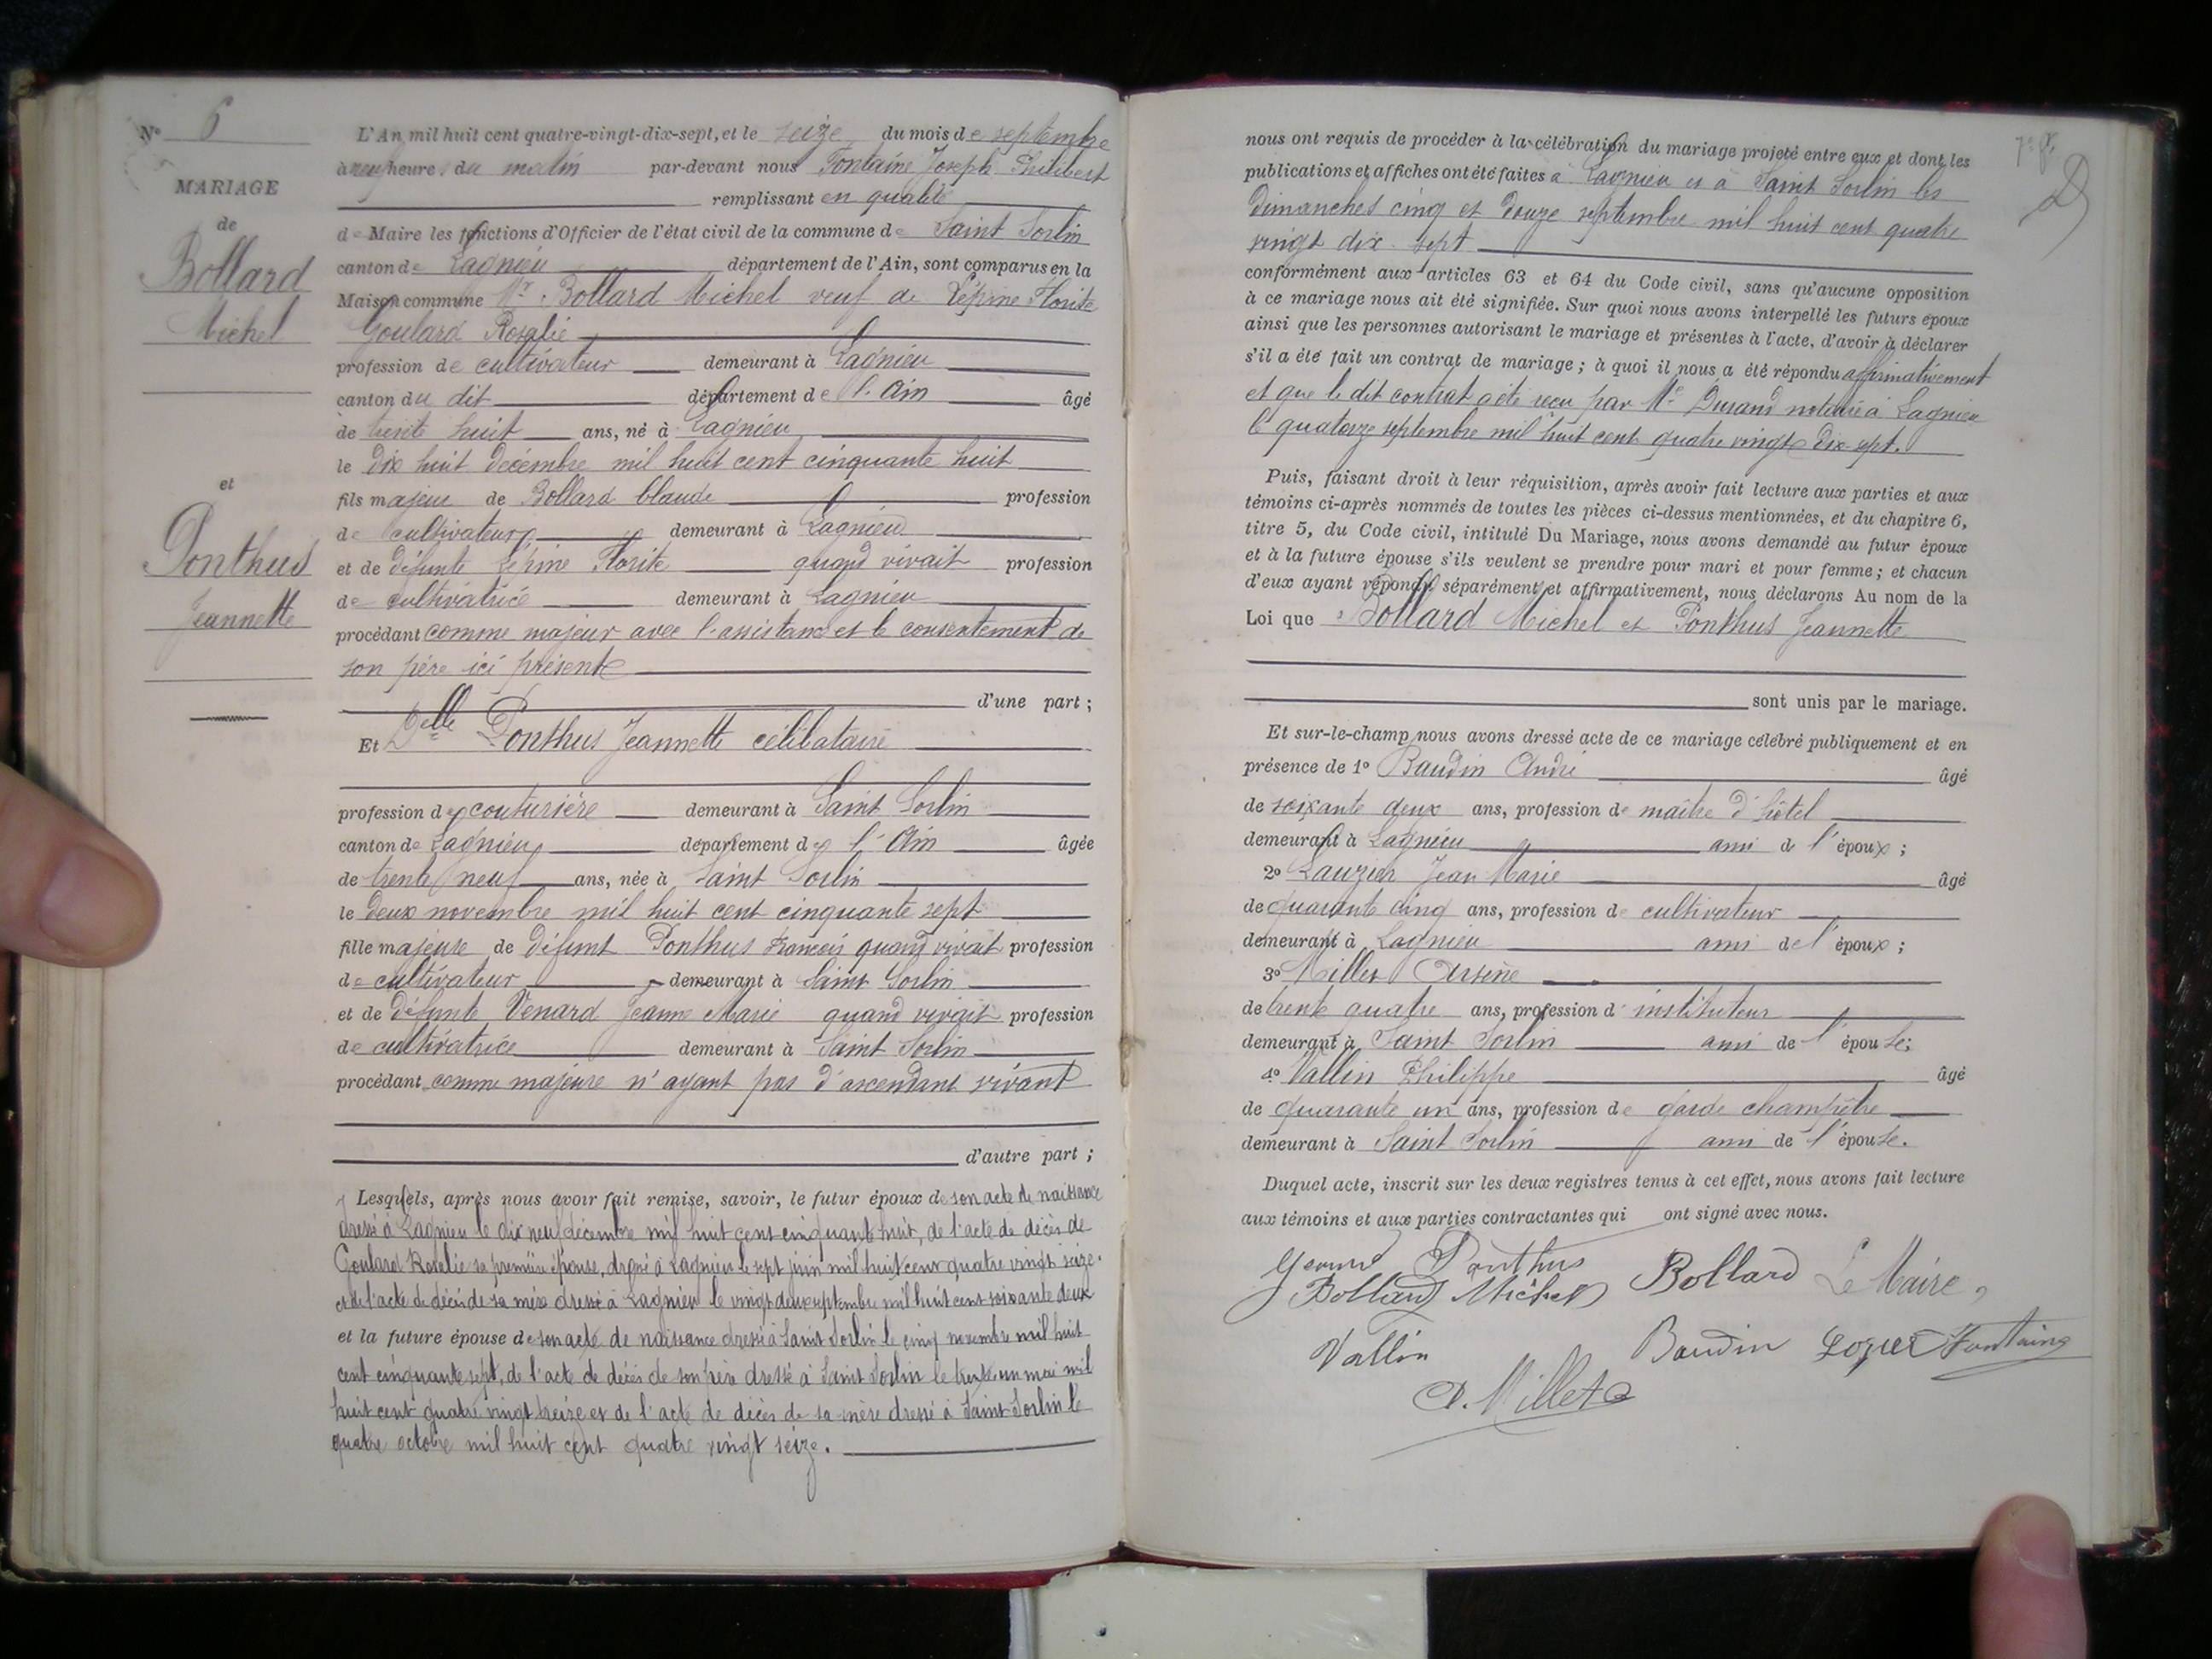 N° 6
MARIAGE
de
Bollard
Michel
et
Ponthus
Jeannette
L'An mil huit cent quatre-vingt-dix-sept, et le seize du mois de septembre
à neuf heures du matin par-devant nous Fontaine Joseph Philibert
remplissant en qualité
de Maire les fonctions d'Officier de l'état civil de la commune de Saint Sorlin
canton de Lagnieu département de l'Ain, sont comparus en la
Maison commune Mr Bollard Michel veuf de Lépine Florite
Goulard Rosalie
profession de cultivateur demeurant à Lagnieu
canton du dit département de l'Ain âgé
de trente huit ans, né à Lagnieu
le dix huit décembre mil huit cent cinquante huit
fils majeur de Bollard Claude profession
de cultivateur demeurant à Lagnieu
et de défunte Lépine Florite quand vivait profession
de cultivatrice demeurant à Lagnieu
procédant comme majeur avec l'assistance et le consentement de
son père ici présent
d'une part ;
Et Delle Ponthus Jeannette célibataire
profession de couturière demeurant à Saint Sorlin
canton de Lagnieu département de l'Ain âgée
de trente neuf ans, née à Saint Sorlin
le deux novembre mil huit cent cinquante sept
fille majeure de défunt Ponthus François quand vivait profession
de cultivateur demeurant à Saint Sorlin
et de défunte Venard Jeanne Marie quand vivait profession
de cultivatrice demeurant à Saint Sorlin
procédant comme majeure n'ayant pas d'ascendant vivant
d'autre part ;
Lesquels, après nous avoir fait remise, savoir, le futur époux de son acte de naissance
dressé à Lagnieu le dix neuf décembre mil huit cent cinquante huit, de l'acte de décès de
Goulard Rosalie sa première épouse, dressé à Lagnieu le sept juin mil huit cent quatre vingt seize
et de l'acte de décès de sa mère dressé à Lagnieu le vingt deux septembre mil huit cent soixante deux
et la future épouse de son acte de naissance dressé à Saint Sorlin le cinq novembre mil huit
cent cinquante sept, de l'acte de décès de son père dressé à Saint Sorlin le trente un mai mil
huit cent quatre vingt treize et de l'acte de décès de sa mère dressé à Saint Sorlin le
quatre octobre mil huit cent quatre vingt seize.
nous ont requis de procéder à la célébration du mariage projeté entre eux et dont les
publications et affiches ont été faites à Lagnieu et à Saint Sorlin les
dimanches cinq et douze septembre mil huit cent quatre
vingt dix sept
conformément aux articles 63 et 64 du Code civil, sans qu'aucune opposition
à ce mariage nous ait été signifiée. Sur quoi nous avons interpellé les futurs époux
ainsi que les personnes autorisant le mariage et présentes à l'acte, d'avoir à déclarer
s'il a été fait un contrat de mariage ; à quoi il nous a été répondu affirmativement
et que le dit contrat a été reçu par Me Durand notaire à Lagnieu
le quatorze septembre mil huit cent quatre vingt dix sept.
Puis, faisant droit à leur réquisition, après avoir fait lecture aux parties et aux
témoins ci-après nommés de toutes les pièces ci-dessus mentionnées, et du chapitre 6,
titre 5, du Code civil, intitulé Du Mariage, nous avons demandé au futur époux
et à la future épouse s'ils veulent se prendre pour mari et pour femme ; et chacun
d'eux ayant répondu séparément et affirmativement, nous déclarons Au nom de la
Loi que Bollard Michel et Ponthus Jeannette
sont unis par le mariage.
Et sur-le-champ nous avons dressé acte de ce mariage célébré publiquement et en
présence de 1° Baudin André âgé
de soixante deux ans, profession de maître d'hôtel
demeurant à Lagnieu ami de l'époux ;
2° Jean Marie âgé
de quarante cinq ans, profession de cultivateur
demeurant à Lagnieu ami de l'époux ;
3° Millet Arsène
de trente quatre ans, profession d'instituteur
demeurant à Saint Sorlin ami de l'épouse;
4° Vallin Philippe âgé
de quarante un ans, profession de garde champêtre
demeurant à Saint Sorlin ami de l'épouse.
Duquel acte, inscrit sur les deux registres tenus à cet effet, nous avons fait lecture
aux témoins et aux parties contractantes qui ont signé avec nous.
Ponthus
Bollard Michel Bollard Le Maire,
Vallin Baudin Fontaine
A. Millet